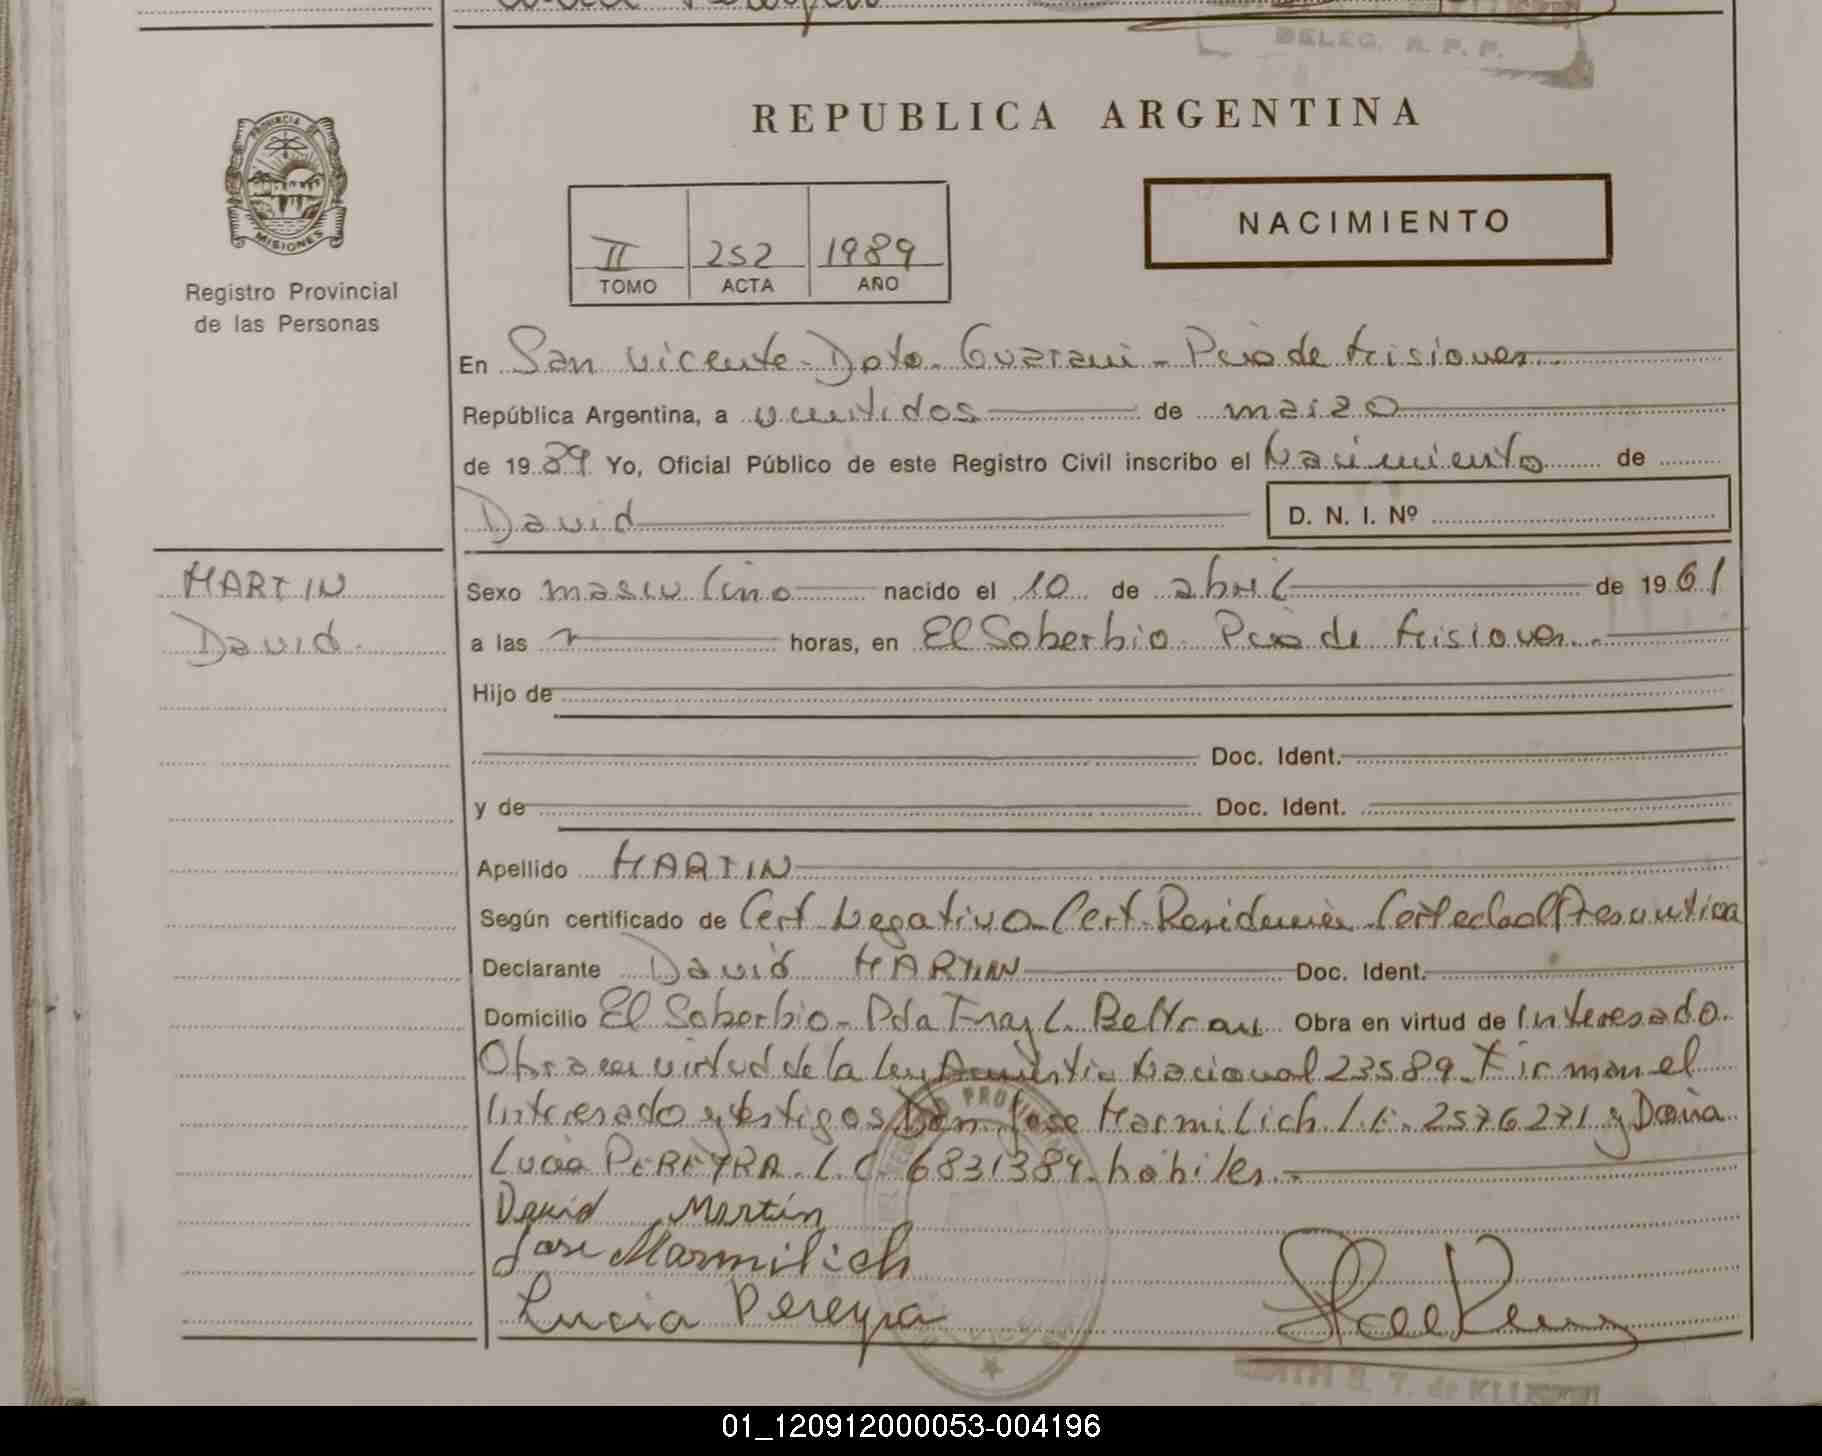 DELEG. R. P. P.
PROVINCIA DE
MISIONES
Registro Provincial
de las Personas
REPUBLICA ARGENTINA
NACIMIENTO
II 252 1989
TOMO ACTA AÑO
En San Vicente - Dpto. Guarani - Pcia de Misiones
República Argentina, a veintidos de marzo
de 1989 Yo, Oficial Público de este Registro Civil inscribo el Nacimiento de
David D. N. I. Nº
MARTIN
David
Sexo masculino nacido el 10 de abril de 1961
a las horas, en El Soberbio - Pcia de Misiones
Hijo de
Doc. Ident.
y de Doc. Ident.
Apellido MARTIN
Según certificado de Cert. Negativo - Cert. Residencia - Cert edad Presuntiva
Declarante David MARTIN Doc. Ident.
Domicilio El Soberbio - Pda Fray L. Beltran Obra en virtud de Interesado.
Obra en virtud de la Ley Amnistia Nacional 23589. Firman el
Interesado y testigos Don Jose Marmilich L.E. 2576271 y Doña
Lucia PEREYRA. L.C. 6831384. hábiles.
David Martín
Jose Marmilich
Lucia Pereyra
01_120912000053-004196